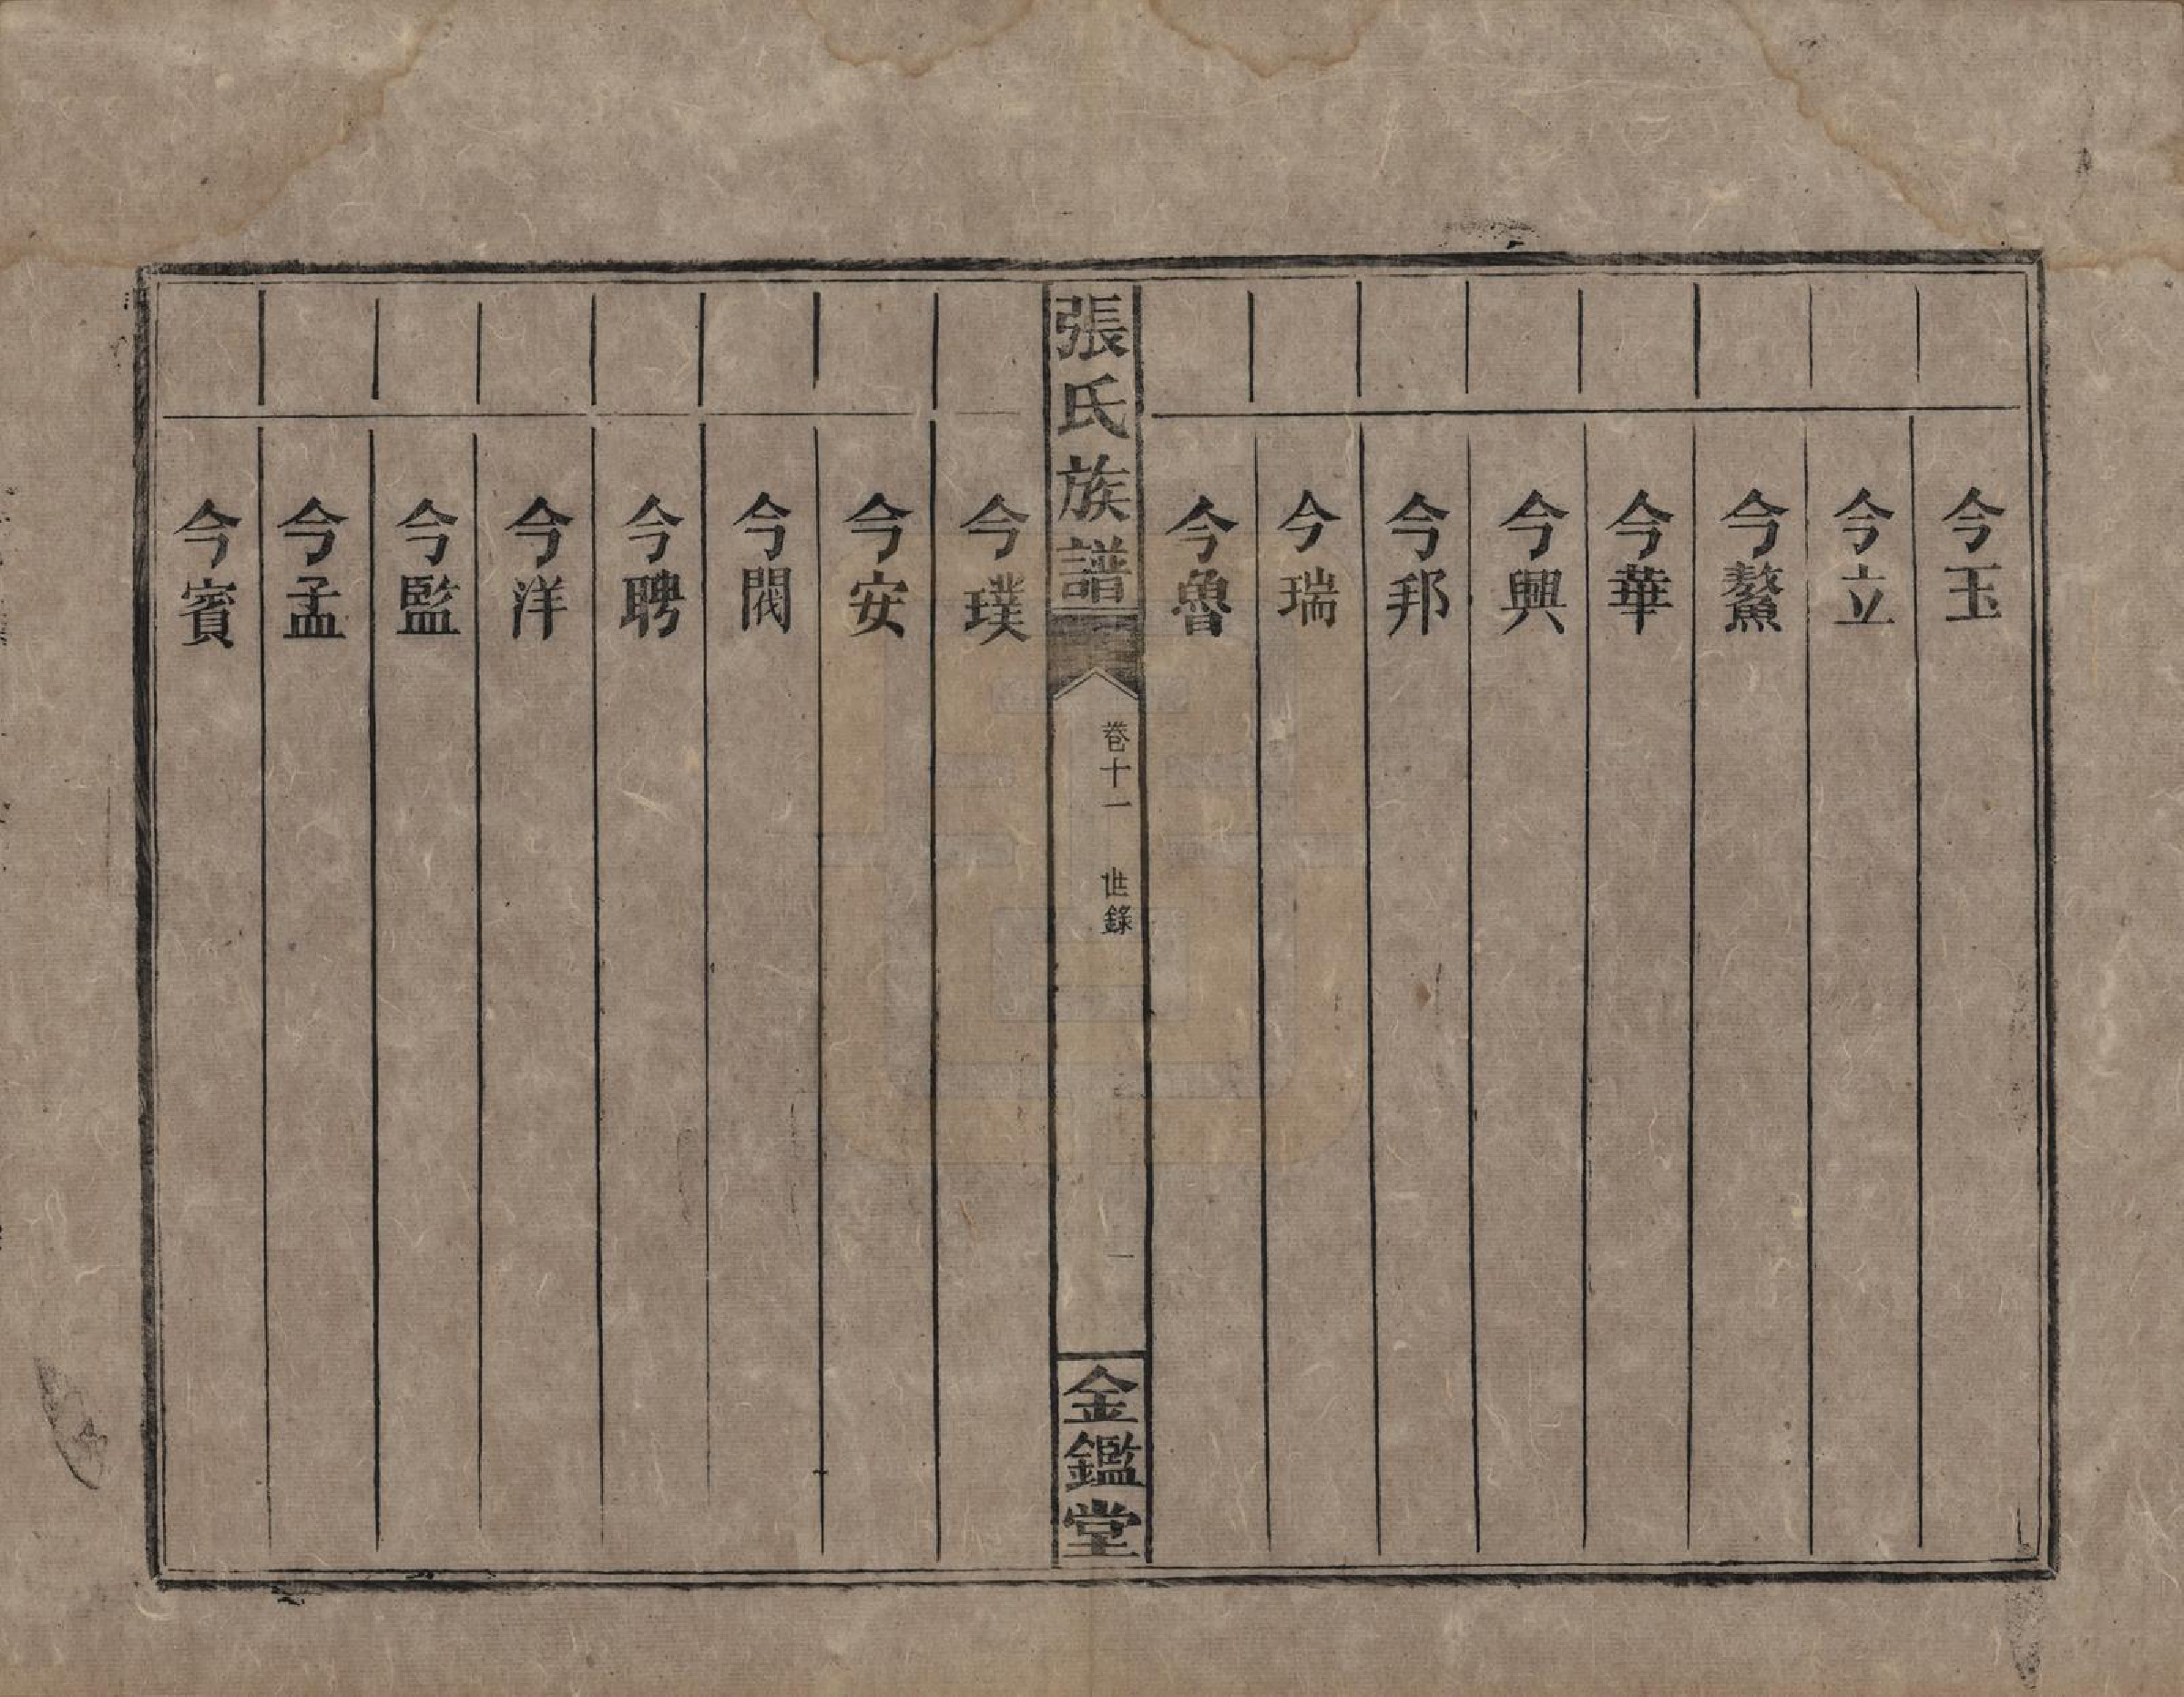 今玉
今立
今鰲
今華
今興
今邦
今瑞
今魯
張氏族譜
卷十一 世錄
一
金鑑堂
今璞
今安
今閥
今聘
今洋
今監
今孟
今賓